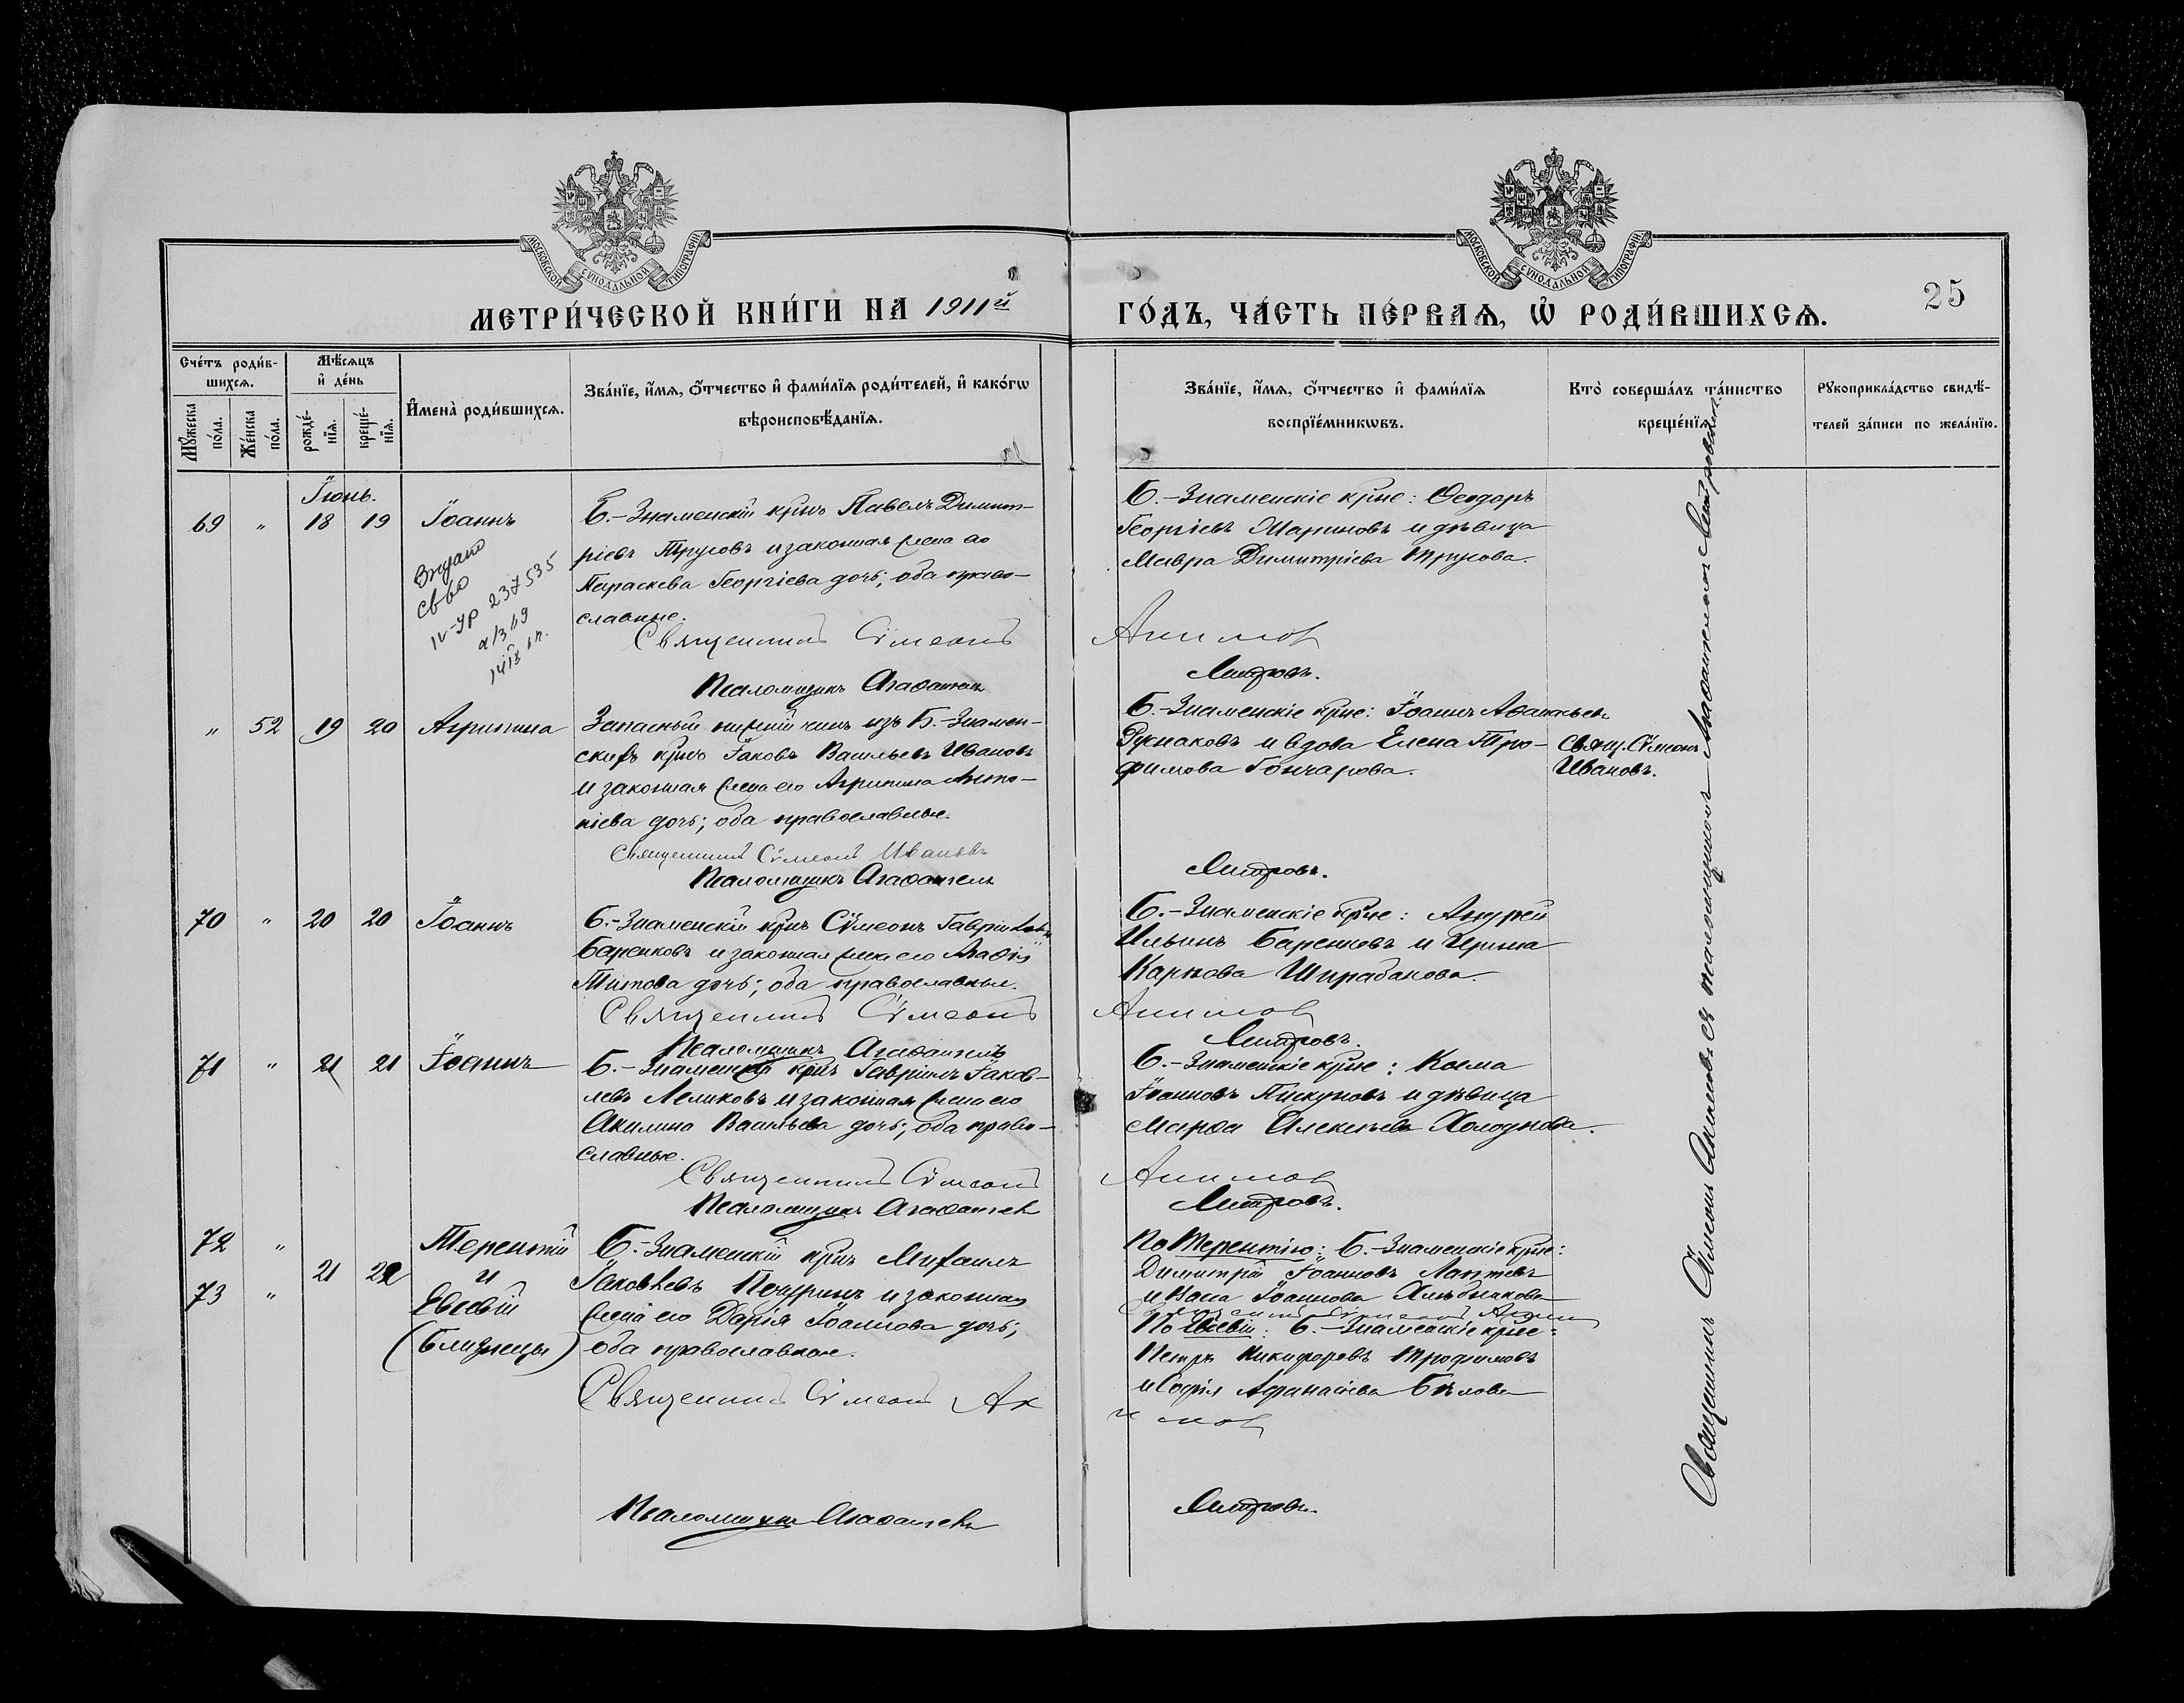 МОСКОВСКОЙ СѴНОДАЛЬНОЙ ТИПОГРАФІИ
МОСКОВСКОЙ СѴНОДАЛЬНОЙ ТИПОГРАФІИ
МЕТРИ́ЧЕСКОЙ КНИ́ГИ НА 1911й
ГО́ДЪ, ЧА́СТЬ ПЕ́РВАѦ, Ѡ҆ РОДИ́ВШИХСѦ.
25
Сче́тъ роди́в-
шихсѧ.
Мꙋ́жеска по́ла.
Же́нска по́ла.
Мѣ́сѧцъ
и҆ де́нь
рожде́-
нїѧ.
креще́-
нїѧ.
И҆мена̀ роди́вшихсѧ.
Зва́нїе, и҆́мѧ, ѻ҆́тчество и҆ фами́лїѧ роди́телей, и҆ како́гѡ
вѣроисповѣ́данїѧ.
Зва́нїе, и҆́мѧ, ѻ҆́тчество и҆ фами́лїѧ
воспрїе́мникѡвъ.
Кто̀ соверша́лъ та́инство
креще́нїѧ.
Рꙋкоприкла́дство свидѣ́-
телей за́писи по жела́нїю.
Іюнь.
69 " 18 19 Іоаннъ
Б.-Знаменскій крнъ Павелъ Димит-
ріевъ Трусовъ и законная жена его
Параскева Георгіева дочь; оба право-
славные.
Священникъ Сѵмеонъ
Псаломщикъ Агаѳангелъ
Б.-Знаменскіе крне: Ѳеодоръ
Георгіевъ Мариновъ и дѣвица
Мавра Димитріева Трусова.
Акимов
Митровъ.
Видано
св во
IV-УР 237535
" 52 19 20 Агрипина
Запасный нижній чинъ изъ Б.-Знамен-
скихъ крнъ Іаковъ Васильевъ Ивановъ
и законная жена его Агрипина Анто-
ніева дочь; оба православные.
Священникъ Сѵмеонъ Ивановъ
Псаломщикъ Агаѳангелъ
Б.-Знаменскіе крне: Іоаннъ Аѳанасьевъ
Руснаковъ и вдова Елена Тро-
фимова Гончарова.
Митровъ.
Свящ. Сѵмеонъ
Ивановъ.
70 " 20 20 Іоаннъ
Б.-Знаменскій крнъ Сѵмеонъ Гавріиловъ
Баренковъ и законная жена его Агаѳія
Титова дочь; оба православные.
Священникъ Сѵмеонъ
Псаломщикъ Агаѳангелъ
Б.-Знаменскіе крне: Андрей
Ильинъ Баренковъ и Ирина
Карпова Ширабокова.
Акимов
Митровъ.
71 " 21 21 Іоаннъ
Б.-Знаменскій крнъ Гавріилъ Іаков-
левъ Леликовъ и законная жена его
Акилина Васильева дочь; оба право-
славные.
Священникъ Сѵмеонъ
Псаломщикъ Агаѳангелъ
Б.-Знаменскіе крне: Косма
Іоанновъ Пискуновъ и дѣвица
Марѳа Алексѣева Холоднова.
Акимов
Митровъ.
72 "
73 "
21 22
Терентій
и
Евсевій
(Близнецы)
Б.-Знаменскій крнъ Михаилъ
Іаковлевъ и законная
жена его Дарія Іоаннова дочь;
оба православные.
Священникъ Сѵмеонъ Ак
Псаломщикъ Агаѳангелъ
По Терентію: Б.-Знаменскіе крне:
Димитрій Іоанновъ Лаптевъ
и Васса Іоаннова Хлѣбникова
По Евсевію: Б.-Знаменскіе крне:
Петръ Никифоровъ Трофимовъ
и Софія Афанасіева Бѣлова
имов
Митровъ.
Священникъ Сѵмеонъ Акимовъ съ псаломщикомъ Агаѳангеломъ Митровымъ.